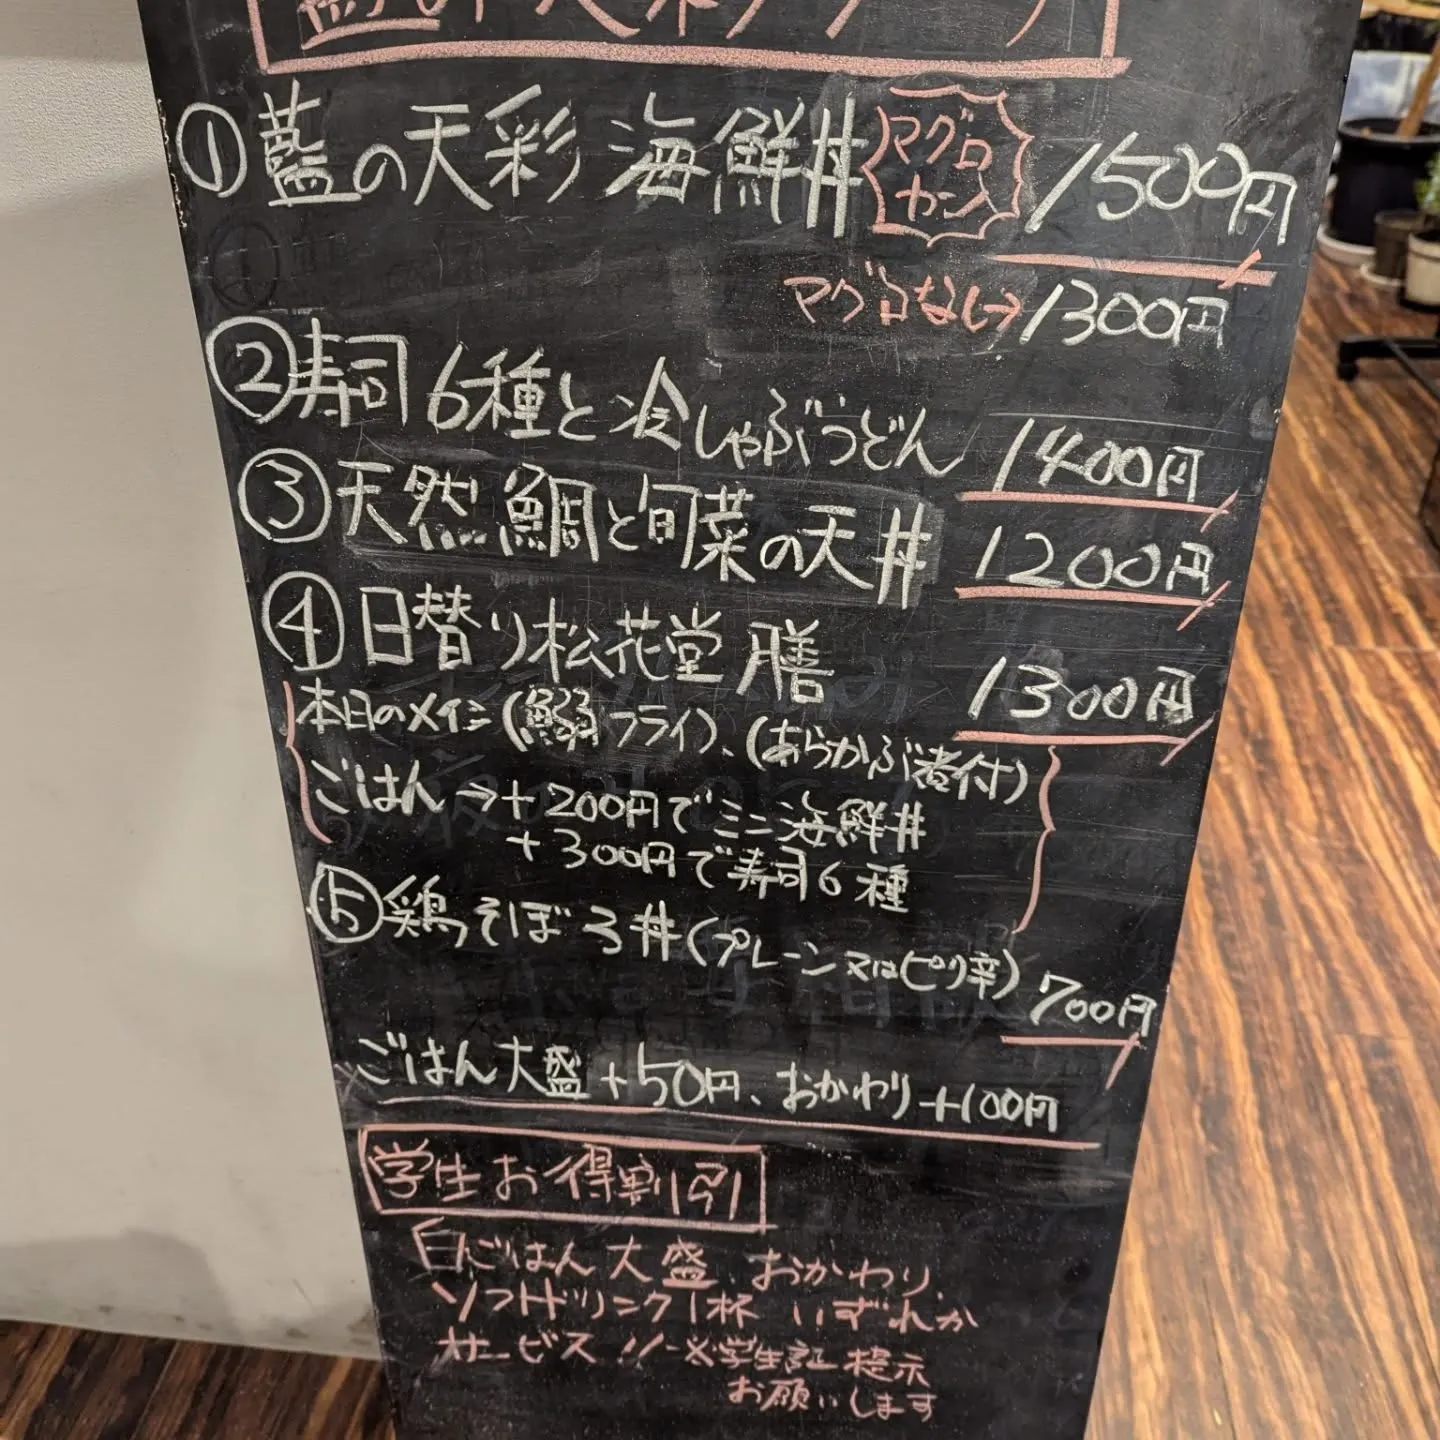 ①藍の天彩 海鮮丼 マグロ 1500円
マグロなし→1300円
②寿司6種と冷しゃぶうどん 1400円
③天然鯛と旬菜の天丼 1200円
④日替り松花堂膳 1300円
本日のメイン(鰯フライ)、(あらかぶ煮付)
ごはん→+200円でミニ海鮮丼
+300円で寿司6種
⑤鶏そぼろ丼(プレーン又はピリ辛) 700円
ごはん大盛+50円、おかわり+100円
学生お得割引
白ごはん大盛、おかわり、
ソフトドリンク1杯 いずれか
サービス!! ※学生証提示
お願いします